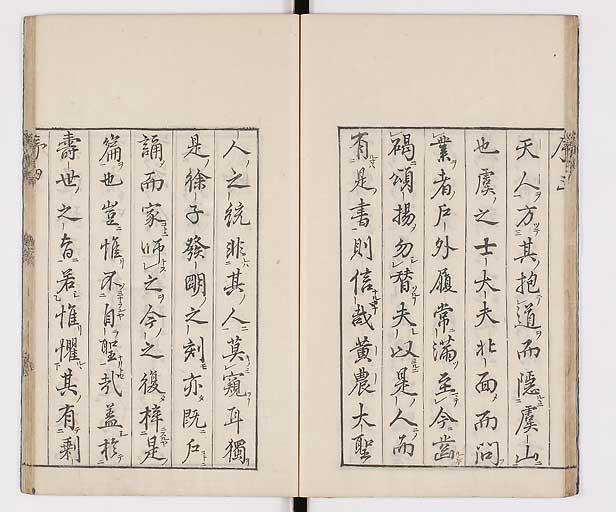 天人方其抱道而隱虞山
也虞之士大夫北面而問
業者戶外履常滿至今齒
碣頌揚勿替夫以是人而
有是書則信哉黃農大聖
人之統非其人莫窺耳獨
是徐子發明之刻亦既戶
誦而家師之今之復梓是
篇也豈惟不自聖哉蓋於
壽世之旨若惟懼其有剩